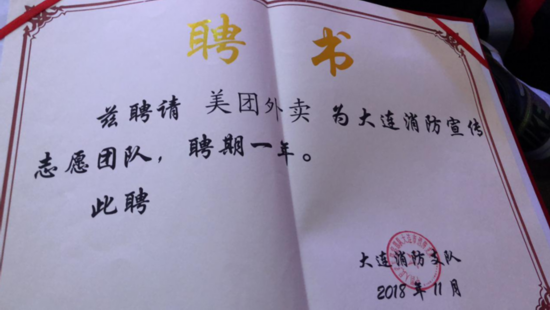 聘书
兹聘请 美团外卖 为大连消防宣传
志愿团队，聘期一年。
此聘
大连消防支队
2018年11月